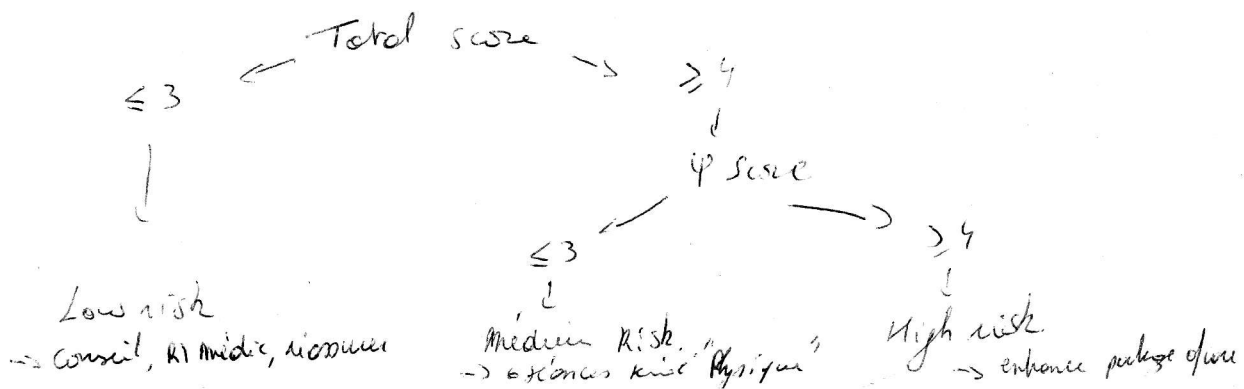 Total score
≤ 3
≥ 4
ψ score
≤ 3
≥ 4
Low risk
→ Conseil, médic,
Médium Risk.
→ séances kiné "Physique"
High risk.
→ enhance package of care